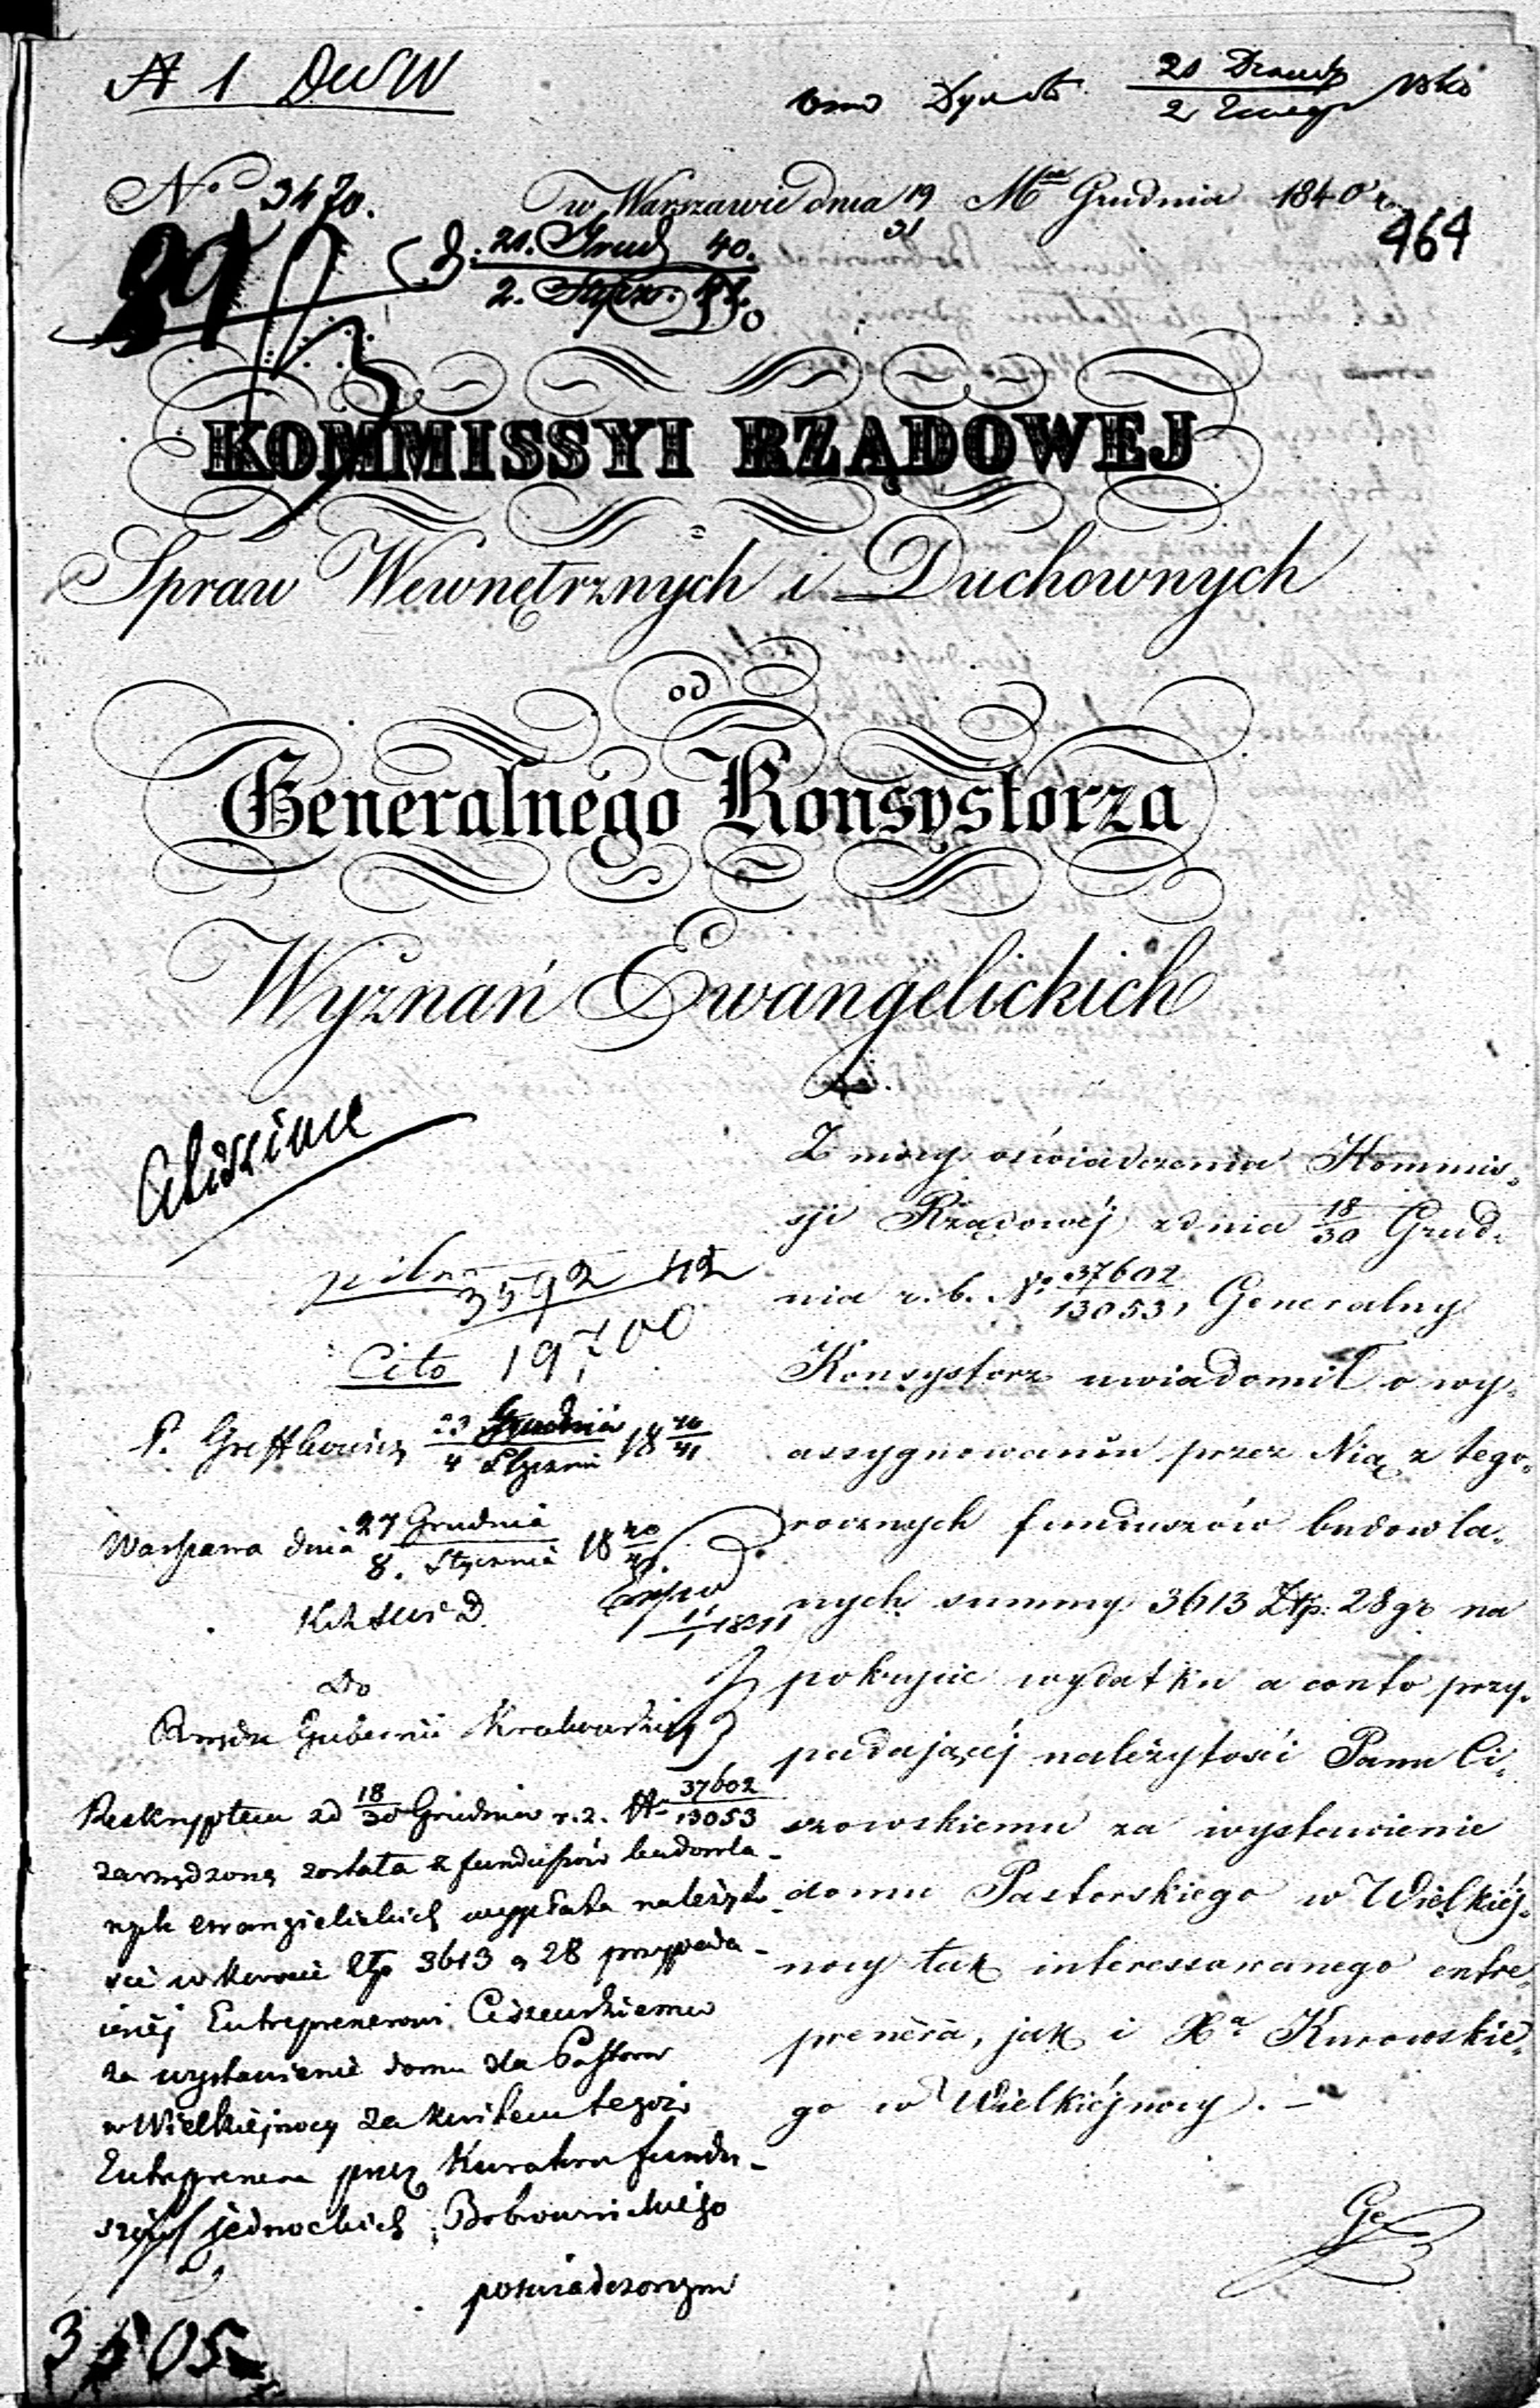 No 3470.
w Warszawie dnia 19/31 Mca Grudnia 1840 r.
464
21. Grud 40.
2.
Do
KOMMISSYI RZĄDOWEJ
Spraw Wewnętrznych i Duchownych
od
Generalnego Konsystorza
Wyznań Ewangelickich
Citissime
pilno
3592 42
Cito 19,700
Z mocy oświadczenia Kommis-
syi Rządowéj z dnia 18/30 Grud-
nia r. b. No 37602/13053, Generalny
Konsystorz uwiadomił o wy-
assygnowaniu przez Nią z tego-
rocznych funduszów budowla-
nych summy 3613 Złp: 28 gr na
pokrycie wydatku a conto przy-
padającéj należytości Panu Ci-
szowskiemu za wystawienie
domu Pastorskiego w Wielkiéj-
nocy tak interessowanego entre-
prenera, jak i Xa Kurowskie-
go w Wielkiéjnocy. —
P. 23 Grudnia/4 Stycznia 18 40/41
Warszawa dnia 27 Grudnia/8. Stycznia 18 40/41
Do
Rządu Gubernii Krakowskiej
Reskryptem z d 18/30 Grudnia r. z. No 37602/13053
zarządzoną została z funduszów budowla-
nych ewangielickich wypłata należyto-
ści w kwocie Złp 3613 g 28 przypada-
jącéj Entreprenerowi Ciszewskiemu
za wystawienie domu dla Pastora
w Wielkiejnocy za kwitem tegoż
Entreprenera przez Kuratora fundu-
szów jednockich Bobrownickiego
poświadczonym